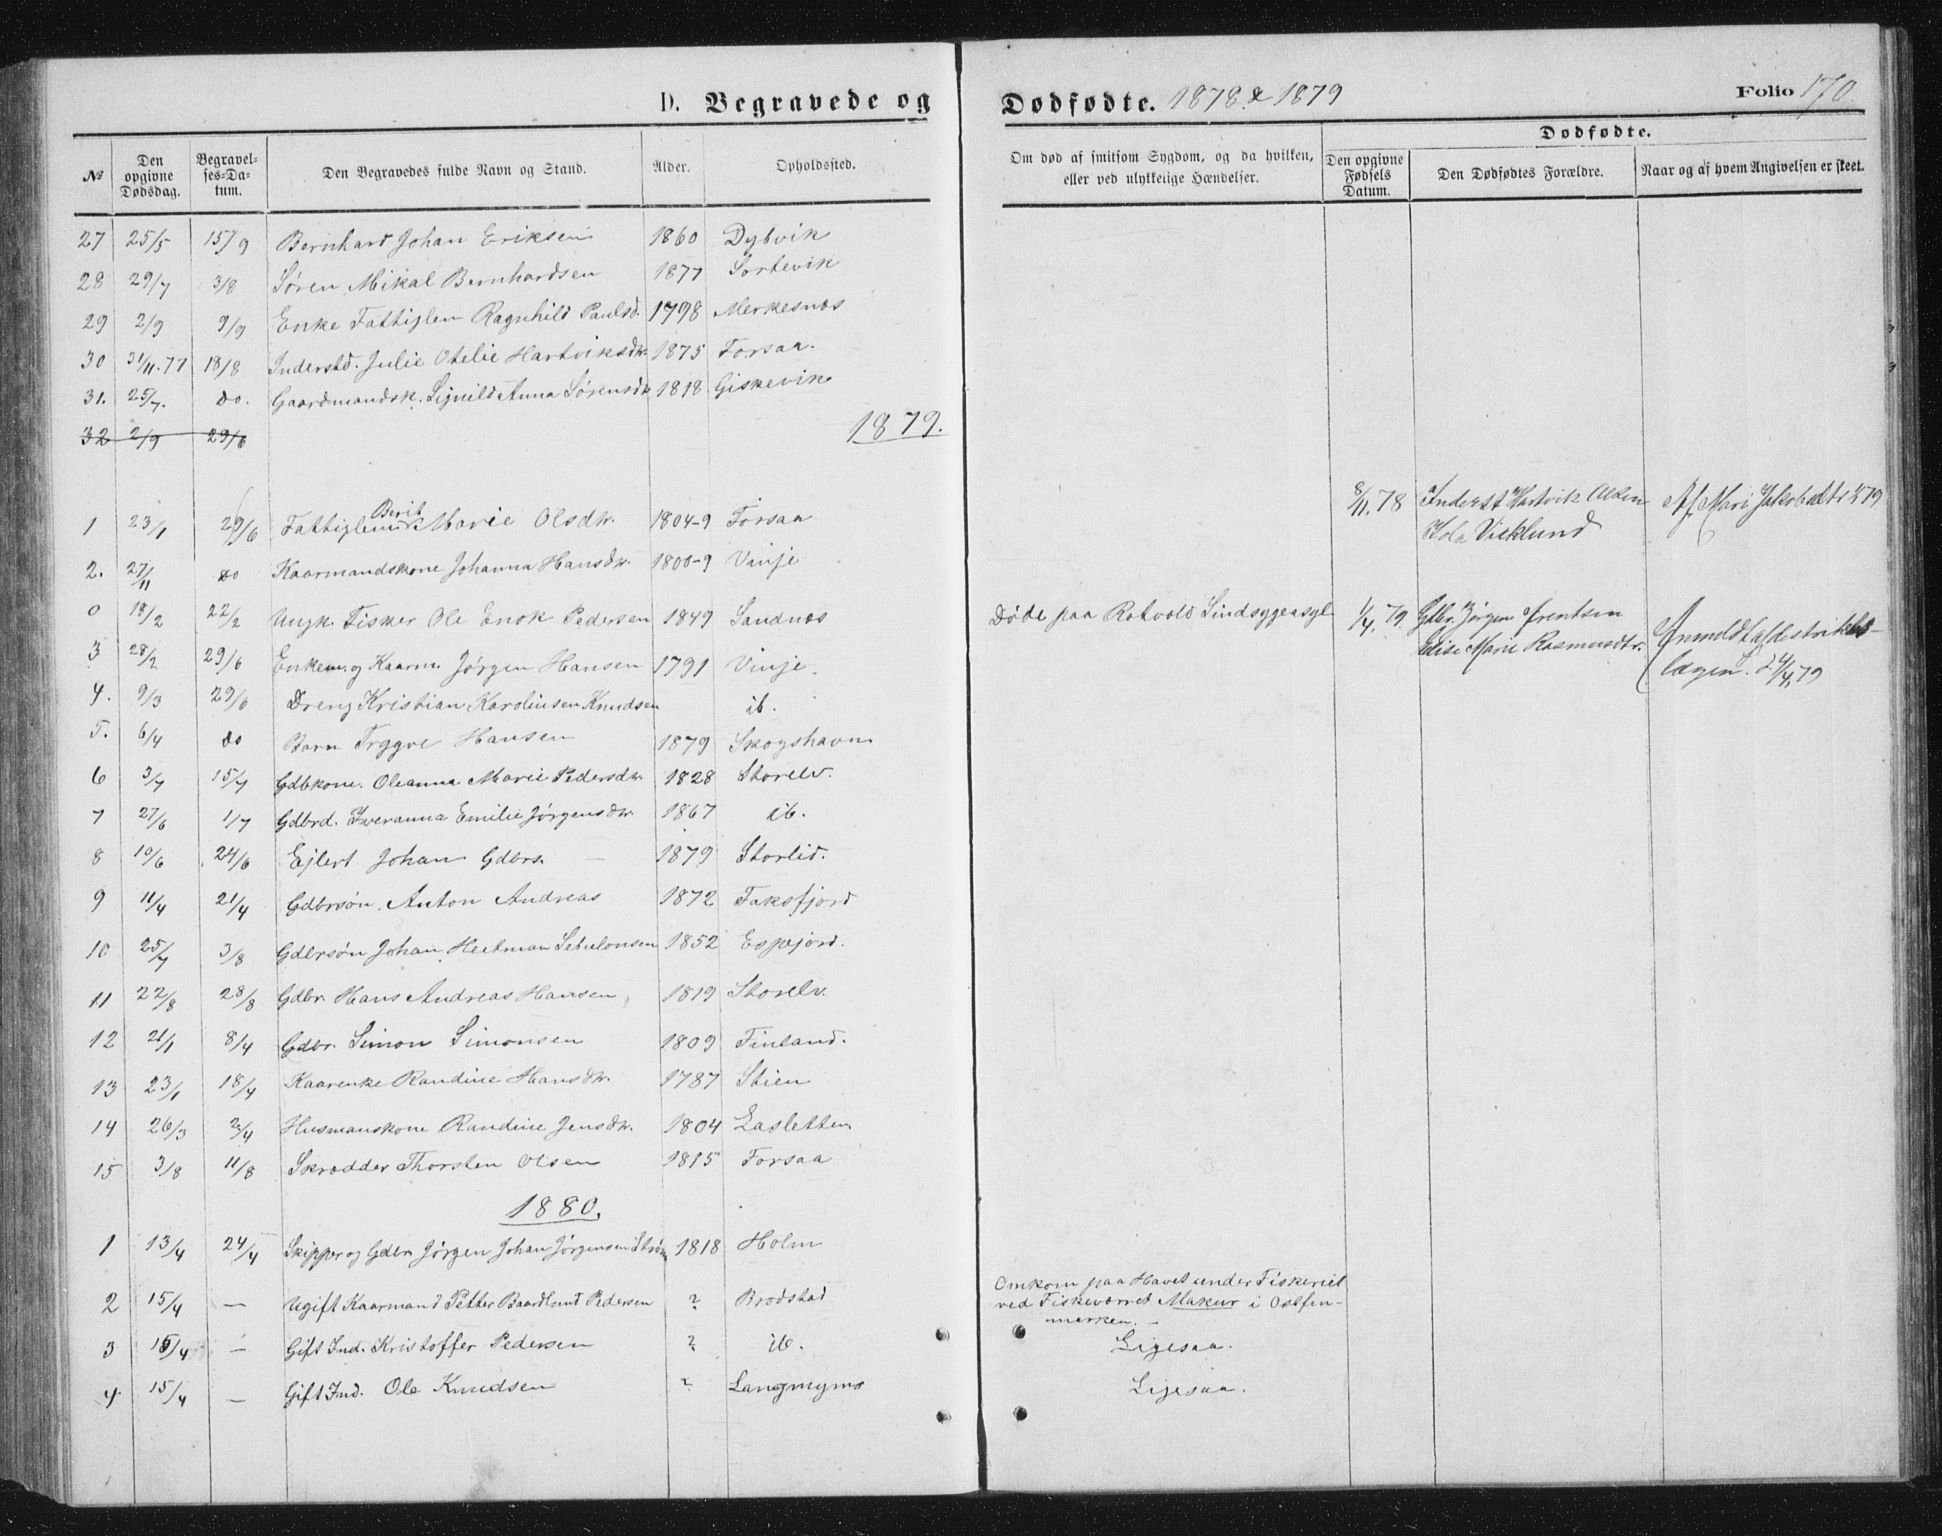 D. Begravede og Dødfødte. 1878 & 1879 Folio 170.
Dødfødte.
№ Den opgivne Dødsdag. Begravelses-Datum. Den Begravedes fulde Navn og Stand. Alder. Opholdssted. Om død af smitsom Sygdom, og da hvilken, eller ved ulykkelige Hændelser. Den opgivne Fødsels Datum. Den Dødfødtes Forældre. Naar og af hvem Angivelsen er skeet.
27 25/5 15/9 Bernhard Johan Eriksen 1860 Dybvik
28 29/7 3/8 Søren Mikal Bernhardsen 1877 Sortevik
29 2/9 9/9 Enke Fattiglem Ragnhild Paulsd. 1798 Merkesnæs
30 31/11.77 18/8 Inderstd. Julie Otelie Hartviksdtr. 1875 Forsaa.
31. 25/7. do. Gaardmandsk. Signild Anna Sørensdtr 1818 Giskevik
32 2/9 29/6
1879.
8/11 78 Inderst Hartvik Olsen Af Mari Jakobsdtr 79
Vicklund
1 23/1 29/6 Fattiglem Berit Marie Olsdtr. 1804-9 Forsaa
2. 27/11 do Kaarmandskone Johanna Hansdtr. 1800-9 Vinje
0 18/2 22/2 Ungk. Fisker Ole Enok Pedersen 1849 Sandnæs Døde paa Rotvold Sindsygeasyl 1/4 79 Gdbr. Jørgen Arentsen
Elise Marie Rasmusdtr. Anmeldt af distrikts-
lægen d. 4/4 79
3 28/2 29/6 Enkem. og Kaarm. Jørgen Hansen 1791 Vinje.
4. 9/3 29/6 Dreng Kristian Karolinsen Knudsen ib.
5. 6/4 do Barn Trygve Hansen 1879 Skogshavn
6 3/7 15/7 Gdbkone. Oleanna Marie Pedersdtr. 1828 Storelv.
7 27/6 1/7 Gdbrd. Iveranna Emilie Jørgensdtr. 1867 ib.
8 10/6 24/6 Ejlert Johan Gdbrs. 1879 Storlid.
9 11/4 21/4 Gdbrsøn. Anton Andreas 1872 Faksfjord
10 25/7 3/8 Gdbrsøn Johan Heitman Sebulonsen 1852 Espejord.
11 22/8 28/8 Gdbr. Hans Andreas Hansen 1819 Storelv.
12 21/1 8/4 Gdbr. Simon Simonsen 1809 Finland.
13 23/1 18/4 Kaarenke Randine Hansdtr. 1787 Stien
14 26/3 2/4 Husmanskone Randine Jensdtr. 1804 Lasletten
15 3/8 11/8 Skrædder Thorsten Olsen 1815 Forsaa
1880.
1 13/4 24/4 Skipper og Gdbr Jørgen Johan Jørgensen Strøm 1818 Holm
2 15/4 — Ugift Kaarmand Petter Baardlund Pedersen ? Brodstad Omkom paa Havet under Fiskeriet
ved Fiskeværret Makur i Ostfin-
merken. —
3 15/4 — Gift Ind. Kristoffer Pedersen ? ib. Ligesaa.
4 15/4 — Gift Ind. Ole Knudsen ? Langmyrns Ligesaa.